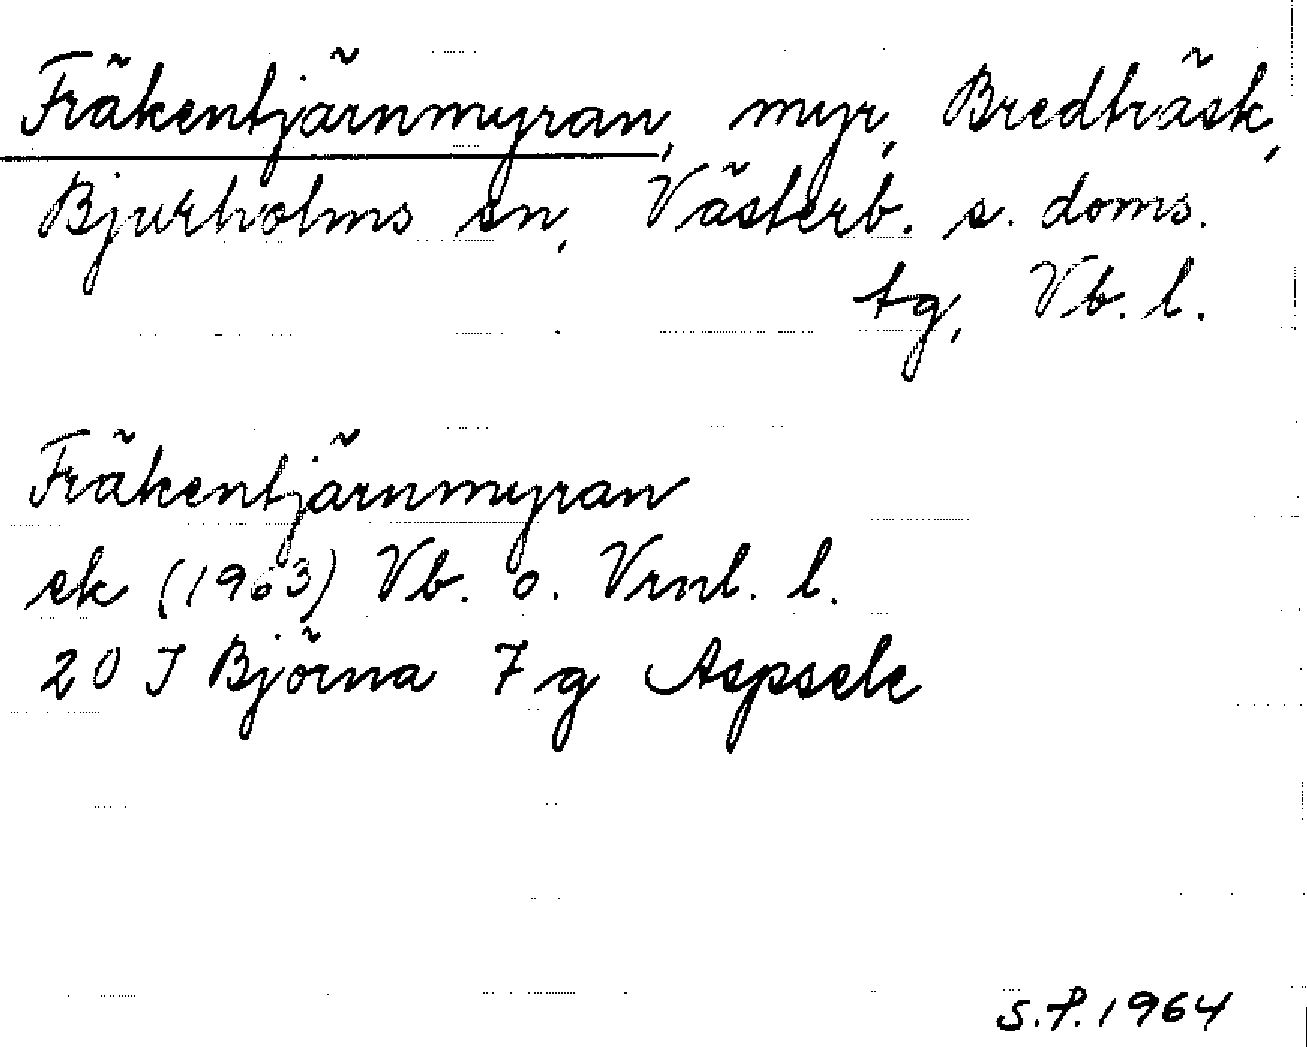 Fräkentjärnmyran, myr, Bredträsk,
Bjurholms sn, Västerb. s. doms.
tg, Vb. l.
Fräkentjärnmyran
ek (1963) Vb. o. Vrnl. l.
20 J Björna 7 g Aspsele
S.P. 1964